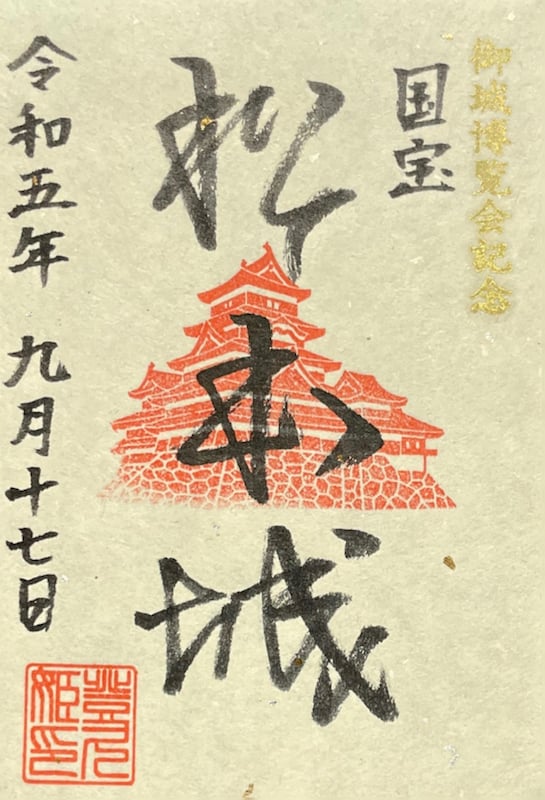 御城博覧会記念
国宝
松本城
令和五年 九月十七日
登久姫印